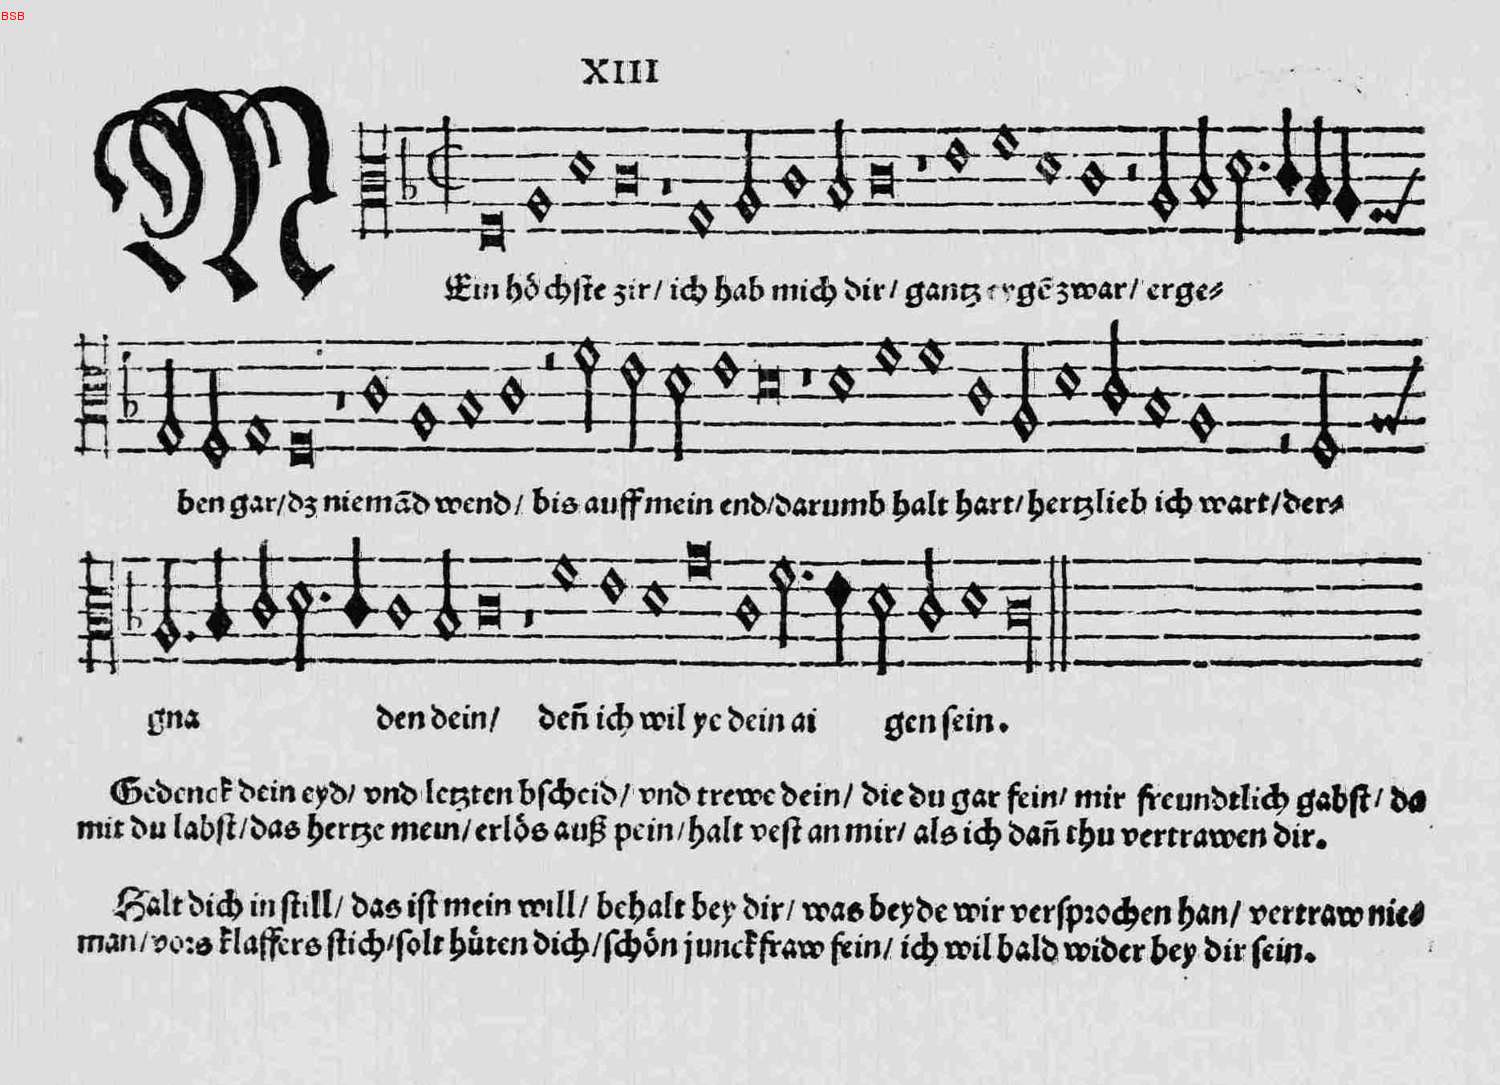 BSB
XIII
MEin hoͤchste zir/ ich hab mich dir/ gantz eygē zwar/ erge⸗
ben gar/dz niemād wend/ bis auff mein end/darumb halt hart/hertzlieb ich wart/der⸗
gna den dein/ deñ ich wil ye dein ai gen sein.
Gedenck dein eyd/ vnd letzten bscheid/ vnd trewe dein/ die du gar fein/ mir freundtlich gabst/ da
mit du labst/das hertze mein/erloͤs auß pein/halt vest an mir/ als ich dañ thu vertrawen dir.
Halt dich in still/ das ist mein will/ behalt bey dir/ was beyde wir versprochen han/ vertraw nie⸗
man/vors klaffers stich/solt huͤten dich/schoͤn junckfraw fein/ ich wil bald wider bey dir sein.